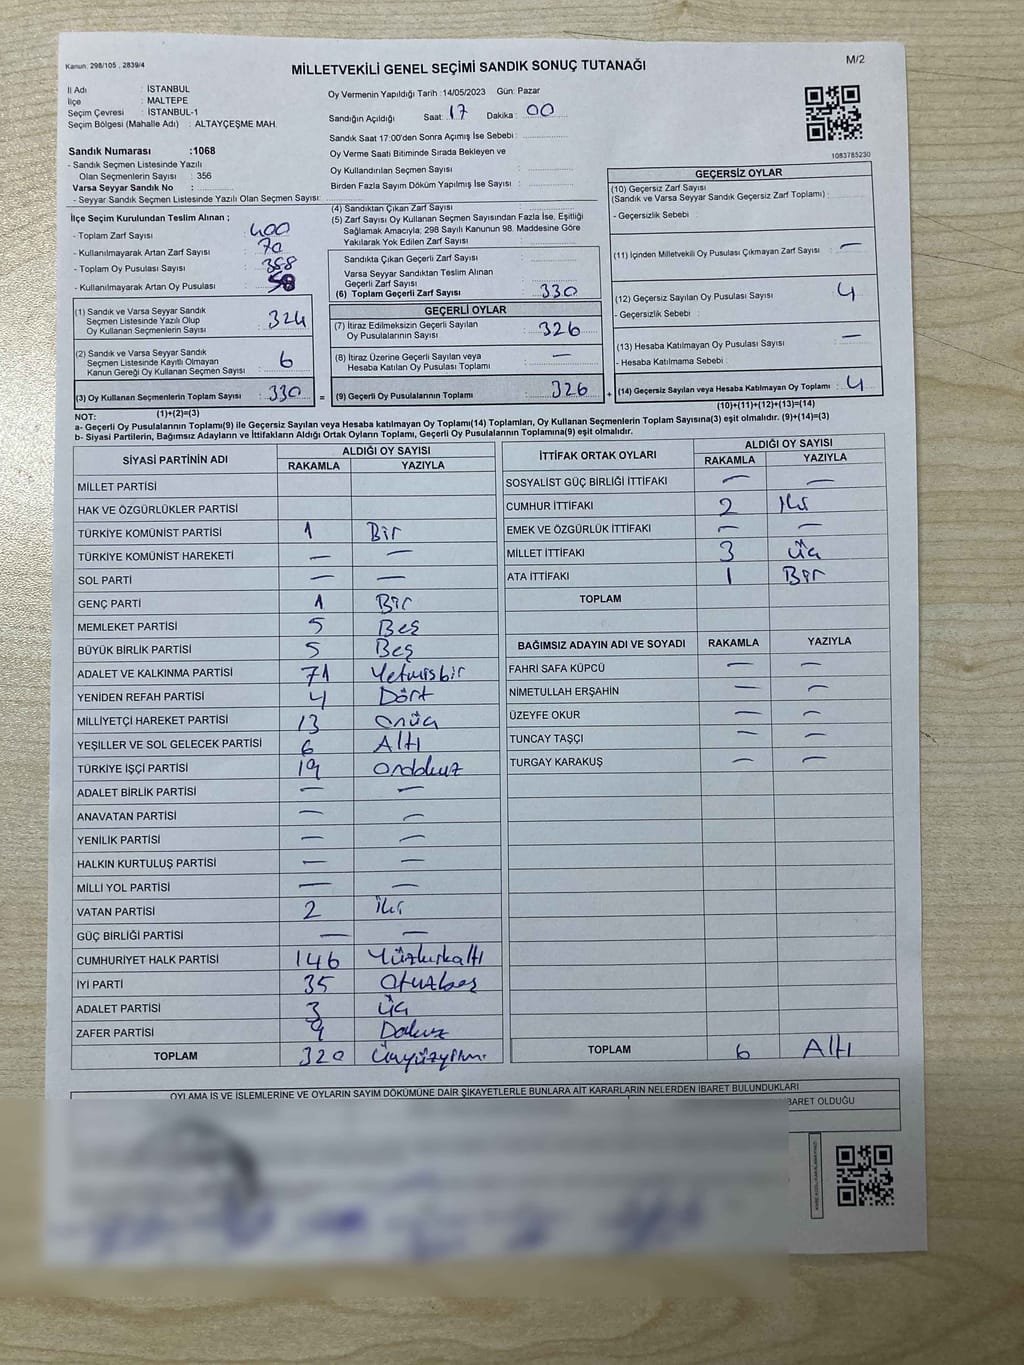 Kanun: 298/105 , 2839/4
M/2
MİLLETVEKİLİ GENEL SEÇİMİ SANDIK SONUÇ TUTANAĞI
İl Adı : İSTANBUL
İlçe : MALTEPE
Seçim Çevresi : İSTANBUL-1
Seçim Bölgesi (Mahalle Adı) : ALTAYÇEŞME MAH.
Oy Vermenin Yapıldığı Tarih :14/05/2023 Gün: Pazar
Sandığın Açıldığı Saat: 17 Dakika: 00
Sandık Saat 17:00'den Sonra Açımış İse Sebebi :
Oy Verme Saati Bitiminde Sırada Bekleyen ve
Oy Kullandırılan Seçmen Sayısı :
Birden Fazla Sayım Döküm Yapılmış İse Sayısı :
1083785230
Sandık Numarası :1068
- Sandık Seçmen Listesinde Yazılı
Olan Seçmenlerin Sayısı : 356
Varsa Seyyar Sandık No :
- Seyyar Sandık Seçmen Listesinde Yazılı Olan Seçmen Sayısı:
İlçe Seçim Kurulundan Teslim Alınan ;
- Toplam Zarf Sayısı : 400
- Kullanılmayarak Artan Zarf Sayısı : 70
- Toplam Oy Pusulası Sayısı : 388
- Kullanılmayarak Artan Oy Pusulası : 58
(1) Sandık ve Varsa Seyyar Sandık
Seçmen Listesinde Yazılı Olup
Oy Kullanan Seçmenlerin Sayısı : 324
(2) Sandık ve Varsa Seyyar Sandık
Seçmen Listesinde Kayıtlı Olmayan
Kanun Gereği Oy Kullanan Seçmen Sayısı : 6
(3) Oy Kullanan Seçmenlerin Toplam Sayısı : 330
(1)+(2)=(3)
(4) Sandıktan Çıkan Zarf Sayısı :
(5) Zarf Sayısı Oy Kullanan Seçmen Sayısından Fazla İse, Eşitliği
Sağlamak Amacıyla; 298 Sayılı Kanunun 98. Maddesine Göre
Yakılarak Yok Edilen Zarf Sayısı :
Sandıkta Çıkan Geçerli Zarf Sayısı :
Varsa Seyyar Sandıktan Teslim Alınan
Geçerli Zarf Sayısı :
(6) Toplam Geçerli Zarf Sayısı : 330
GEÇERLİ OYLAR
(7) İtiraz Edilmeksizin Geçerli Sayılan
Oy Pusulasının Sayısı : 326
(8) İtiraz Üzerine Geçerli Sayılan veya
Hesaba Katılan Oy Pusulası Toplamı : —
= (9) Geçerli Oy Pusulalarının Toplamı : 326 +
GEÇERSİZ OYLAR
(10) Geçersiz Zarf Sayısı
(Sandık ve Varsa Seyyar Sandık Geçersiz Zarf Toplamı) :
- Geçersizlik Sebebi :
(11) İçinden Milletvekili Oy Pusulası Çıkmayan Zarf Sayısı : —
(12) Geçersiz Sayılan Oy Pusulası Sayısı : 4
- Geçersizlik Sebebi :
(13) Hesaba Katılmayan Oy Pusulası Sayısı : —
- Hesaba Katılmama Sebebi :
(14) Geçersiz Sayılan veya Hesaba Katılmayan Oy Toplamı : 4
(10)+(11)+(12)+(13)=(14)
NOT:
a- Geçerli Oy Pusulalarının Toplamı(9) ile Geçersiz Sayılan veya Hesaba katılmayan Oy Toplamı(14) Toplamları, Oy Kullanan Seçmenlerin Toplam Sayısına(3) eşit olmalıdır. (9)+(14)=(3)
b- Siyasi Partilerin, Bağımsız Adayların ve İttifakların Aldığı Ortak Oyların Toplamı, Geçerli Oy Pusulalarının Toplamına(9) eşit olmalıdır.
SİYASİ PARTİNİN ADI ALDIĞI OY SAYISI
RAKAMLA YAZIYLA
MİLLET PARTİSİ
HAK VE ÖZGÜRLÜKLER PARTİSİ
TÜRKİYE KOMÜNİST PARTİSİ 1 Bir
TÜRKİYE KOMÜNİST HAREKETİ — —
SOL PARTİ — —
GENÇ PARTİ 1 Bir
MEMLEKET PARTİSİ 5 Beş
BÜYÜK BİRLİK PARTİSİ 5 Beş
ADALET VE KALKINMA PARTİSİ 71 Yetmişbir
YENİDEN REFAH PARTİSİ 4 Dört
MİLLİYETÇİ HAREKET PARTİSİ 13 onüç
YEŞİLLER VE SOL GELECEK PARTİSİ 6 Altı
TÜRKİYE İŞÇİ PARTİSİ 19 ondokuz
ADALET BİRLİK PARTİSİ — —
ANAVATAN PARTİSİ — —
YENİLİK PARTİSİ — —
HALKIN KURTULUŞ PARTİSİ — —
MİLLİ YOL PARTİSİ — —
VATAN PARTİSİ 2 iki
GÜÇ BİRLİĞİ PARTİSİ — —
CUMHURİYET HALK PARTİSİ 146 Yüzkırkaltı
İYİ PARTİ 35 otuzbeş
ADALET PARTİSİ 3 üç
ZAFER PARTİSİ 9 Dokuz
TOPLAM 320 Üçyüzyirmi
İTTİFAK ORTAK OYLARI ALDIĞI OY SAYISI
RAKAMLA YAZIYLA
SOSYALİST GÜÇ BİRLİĞİ İTTİFAKI — —
CUMHUR İTTİFAKI 2 İki
EMEK VE ÖZGÜRLÜK İTTİFAKI — —
MİLLET İTTİFAKI 3 üç
ATA İTTİFAKI 1 Bir
TOPLAM
BAĞIMSIZ ADAYIN ADI VE SOYADI RAKAMLA YAZIYLA
FAHRİ SAFA KÜPCÜ — —
NİMETULLAH ERŞAHİN — —
ÜZEYFE OKUR — —
TUNCAY TAŞÇI — —
TURGAY KARAKUŞ — —
TOPLAM 6 Altı
OYLAMA İŞ VE İŞLEMLERİNE VE OYLARIN SAYIM DÖKÜMÜNE DAİR ŞİKAYETLERLE BUNLARA AİT KARARLARIN NELERDEN İBARET BULUNDUKLARI
İBARET OLDUĞU